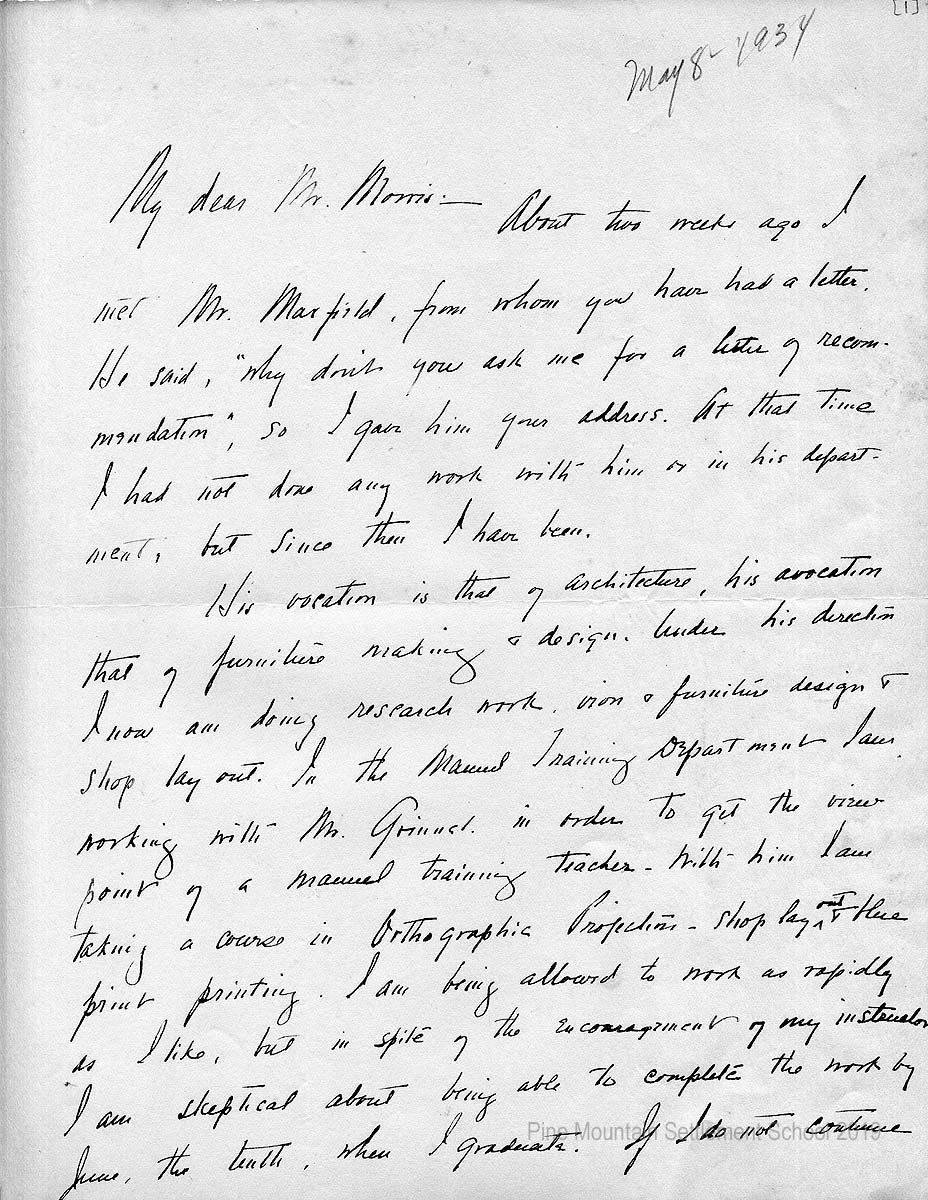 [1]
May 8 - 1934
My dear Mr. Morris:—
About two weeks ago I
met Mr. Maxfield, from whom you have had a letter.
He said, "why don't you ask me for a letter of recom-
mendation", so I gave him your address. At that time
I had not done any work with him or in his depart-
ment, but since then I have been.
His vocation is that of architecture, his avocation
that of furniture making & design. Under his direction
I now am doing research work, iron & furniture design &
shop lay out. In the Manual Training Department I am
working with Mr. Grinnel. in order to get the view
point of a manual training teacher - With him I am
taking a course in Orthographic Projection - shop lay out & blue
print printing. I am being allowed to work as rapidly
as I like, but in spite of the encouragement of my instructor
I am skeptical about being able to complete the work by
June, the tenth, when I graduate. If I do not continue
Pine Mountain Settlement School 2019